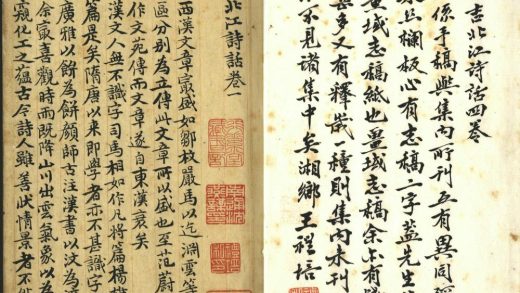 吉北江詩話四卷
係手稿與集內所刊互有異同
絲欄板心有志稿二字蓋先生
畺域志稿紙也畺域志稿余亦有
與多又有釋歲一種則集內未刊
不見諸集中矣湘鄉王禮培
北江詩話卷一
西漢文章最盛如鄒枚嚴馬以迄淵雲等
區分別為立傳此文章所以盛也至范蔚
作文苑傳而文章遂自東漢衰矣
漢文人無不識字司馬相如作凡將篇楊
篇是矣隋唐以來即學者亦不甚識字
廣雅以餅為餅顏師古注漢書以汶為
余最喜觀時雨既降山川出雲氣象以為
窺化工之蘊古今詩人雖善狀情景者不